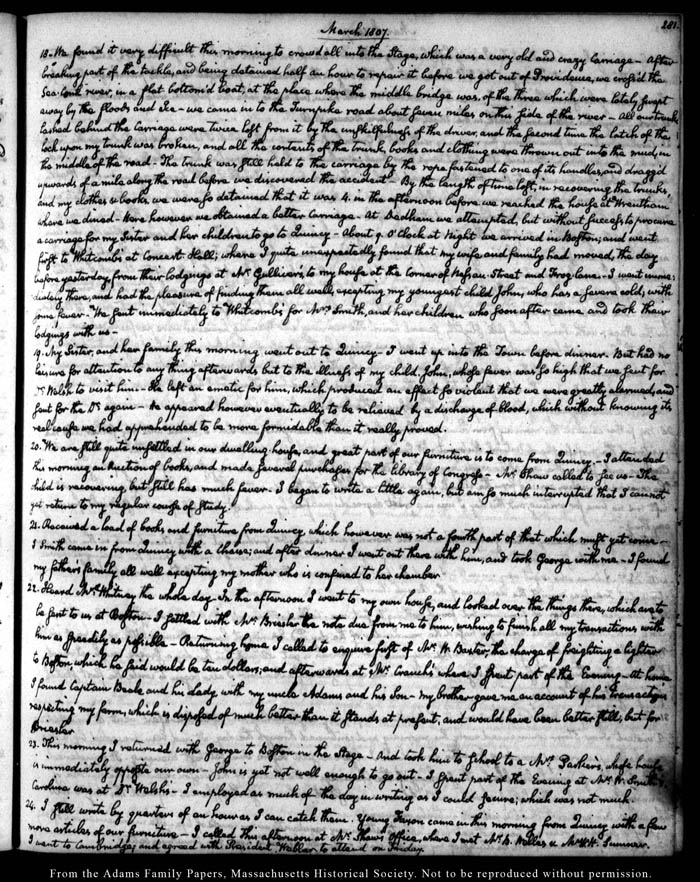 March 1807.
281.
18. We found it very difficult this morning to crowd all into the Stage, which was a very old and crazy Carriage — After
breaking part of the tackle, and being detained half an hour to repair it before we got out of Providence, we cross'd the
Sea-Conk river, in a flat bottom'd boat, at the place where the middle bridge was, of the three which were lately swept
away by the floods and Ice — we came in to the Turnpike road about seven miles on this side of the river — All our trunks
lashed behind the carriage were twice lost from it by the unskilfulness of the driver, and the second time the latch of the
lock upon my trunk was broken, and all the contents of the trunk, books and clothing were thrown out into the mud, in
the middle of the road. The trunk was still held to the carriage by the rope fastened to one of its handles, and dragg'd
upwards of a mile along the road before we discovered the accident. By the length of time lost, in recovering the trunks,
and my clothes & books, we were so detained that it was 4. in the afternoon before we reached the house at Wrentham
where we dined — Here however we obtained a better Carriage — At Dedham we attempted, but without success to procure
a carriage for my Sister and her children to go to Quincy — About 9. O'Clock at Night we arrived in Boston; and went
first to Whitcomb's at Concert Hall; where I quite unexpectedly found that my wife and family had moved, the day
before yesterday, from their lodgings at Mr. Gulliver's, to my house at the corner of Nassau-Street and Frog-lane. I went imme-
diately there, and had the pleasure of finding them all well; excepting my youngest child John, who has a severe cold, with
some fever. We sent immediately to Whitcombs for Mrs. Smith, and her children who soon after came and took their
lodgings with us —
19. My Sister, and her family this morning went out to Quincy — I went up into the Town before dinner. But had no
leisure for attention to any thing afterwards but to the illness of my child, John, whose fever was so high that we sent for
Dr. Welsh to visit him — He left an emetic for him, which produced an effect so violent that we were greatly alarmed, and
sent for the Dr. again — He appeared however eventually to be relieved by a discharge of blood, which without knowing its
real cause we had apprehended to be more formidable than it really proved.
20. We are still quite unsettled in our dwelling-house, and great part of our furniture is to come from Quincy — I attended
this morning an Auction of books, and made several purchases for the library of Congress — Mr. Shaw called to see us — The
child is recovering, but still has much fever — I began to write a little again, but am so much interrupted that I cannot
yet return to my regular course of study.
21. Received a load of books and furniture from Quincy which however was not a fourth part of that which must yet come —
J. Smith came in from Quincy with a Chaise; and after dinner I went out there with him, and took George with me — I found
my father's family all well excepting my mother who is confined to her chamber.
22. Heard Mr. Whitney the whole day. In the afternoon I went to my own house, and looked over the things there, which are to
be sent to us at Boston — I settled with Mr. Briesler the note due from me to him, wishing to finish all my transactions with
him as speedily as possible — Returning home I called to enquire first of Mr. W. Baxter, the charge of freighting a lighter
to Boston, which he said would be ten dollars; and afterwards at Mr. Cranch's where I spent part of the Evening — At home
I found Captain Beale and his lady, with my uncle Adams and his Son — My brother gave me an account of his transactions
respecting my farm, which is disposed of much better than it stands at present, and would have been better still; but for
Briesler
23. This morning I returned with George to Boston in the Stage — And took him to School to a Mr. Parker's, whose house
is immediately opposite our own — John is yet not well enough to go out — I spent part of the Evening at Mr. W. Smith's
Carolina was at Dr. Welsh's — I employed as much of the day in writing as I could secure; which was not much.
24. I still write by quarters of an hour as I can catch them. Young came in this morning from Quincy with a few
more articles of our furniture — I called this afternoon at Mr. Shaw's Office, where I met Mr. & Mr. W. H. Sumner.
I went to Cambridge, and agreed with President Webber to attend on Friday.
From the Adams Family Papers, Massachusetts Historical Society. Not to be reproduced without permission.